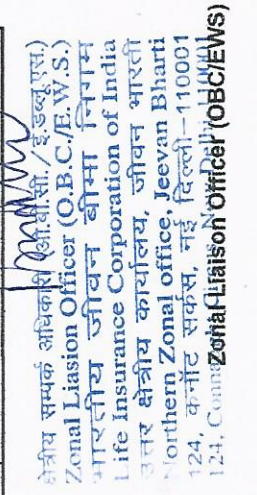 क्षेत्रीय सम्पर्क अधिकारी (ओ.बी.सी./ई.डब्लू.एस.)
Zonal Liasion Officer (O.B.C./E.W.S.)
भारतीय जीवन बीमा निगम
Life Insurance Corporation of India
उत्तर क्षेत्रीय कार्यालय, जीवन भारती
Northern Zonal office, Jeevan Bharti
124, कनॉट सर्कस, नई दिल्ली–110001
124, Conna
Zonal Liaison Officer (OBC/EWS)